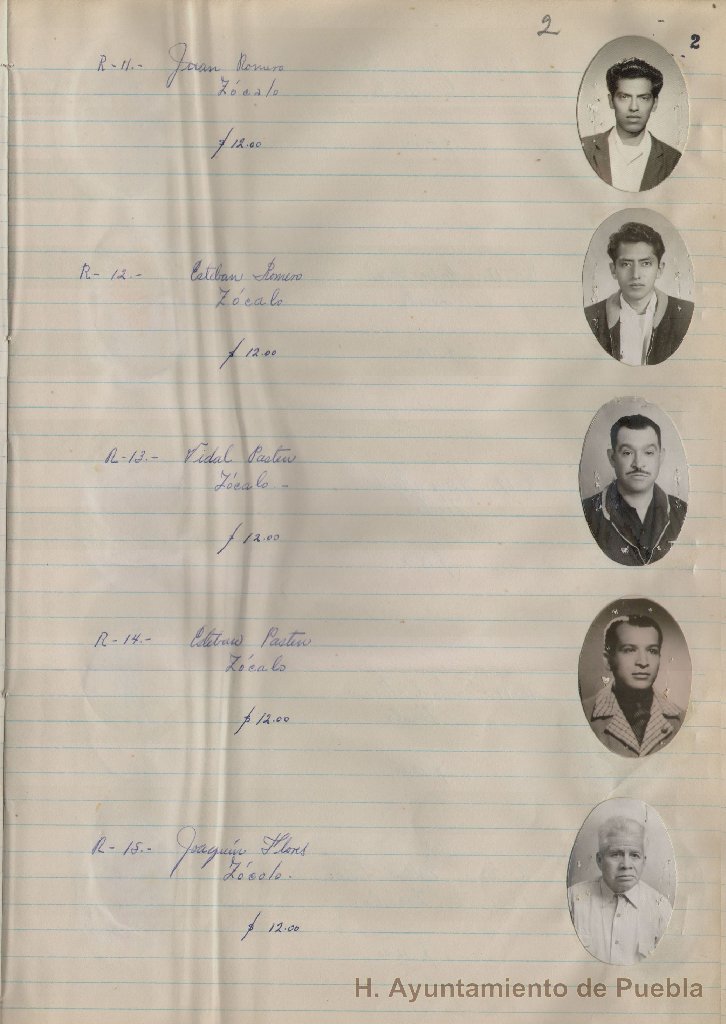 2
2
R-11.- Juan Romero
Zócalo
$ 12.00
R-12.- Esteban Romero
Zócalo
$ 12.00
R-13.- Vidal Pasten
Zócalo -
$ 12.00
R-14.- Esteban Pasten
Zócalo
$ 12.00
R-15.- Joaquín Flores
Zócalo.
$ 12.00
H. Ayuntamiento de Puebla